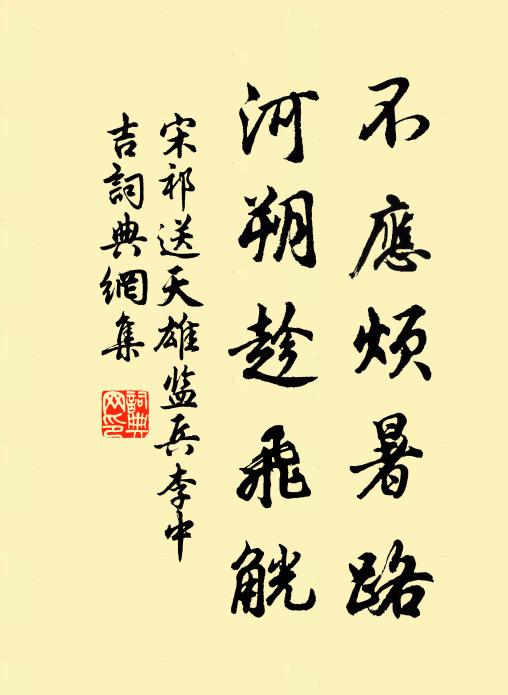 不應煩暑路
河朔趁飛觥
宋祁送天雄监兵李中
吉詞典網集
詞典
网印